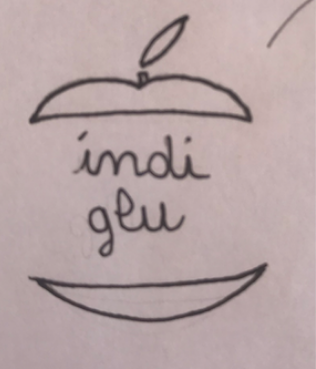 indi
glu